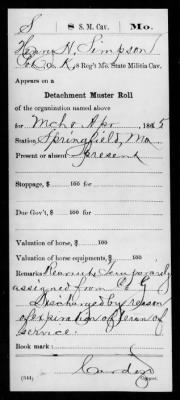 S | 8 S. M. Cav. | Mo.
Henry H. Simpson
Co. K, 8 Reg't Mo. State Militia Cav.
Appears on a
Detachment Muster Roll
of the organization named above
for Mch & Apr, 1865
Station Springfield, Mo
Present or absent Present
Stoppage, $ 100 for
Due Gov't, $ 100 for
Valuation of horse, $ 100
Valuation of horse equipments, $ 100
Remarks temporarily
assigned from Co G
Discharged by reason
of expiration of term of
service.
Book mark:
(344) Copyist.